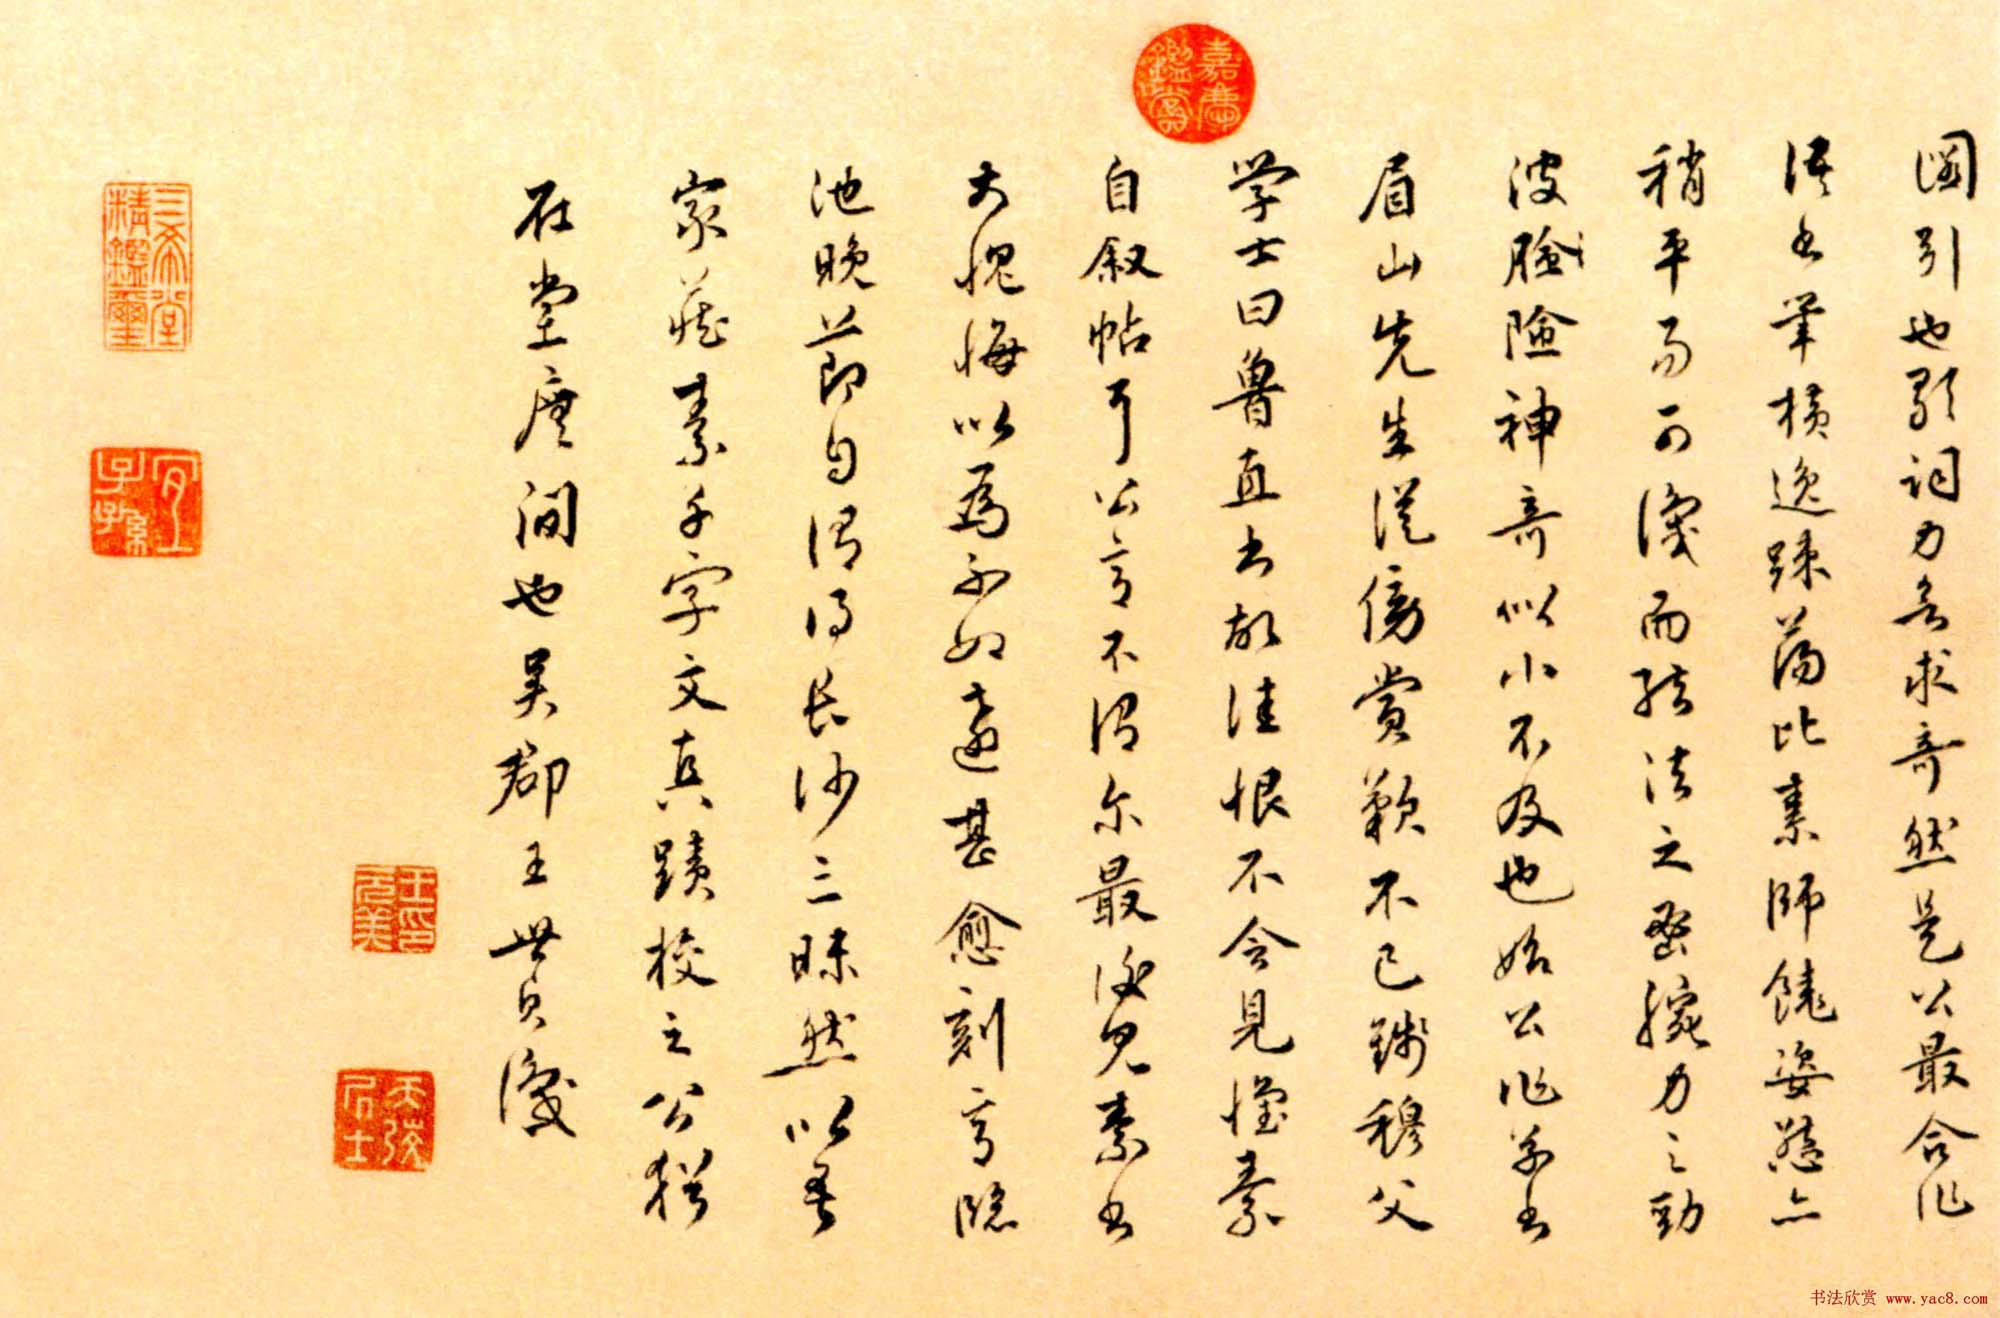 嘉慶鑑賞
圖引也歌詞力求奇然是公最合作
語書筆橫逸踈蕩比素師饒姿態亦
稍平易可識而結法之密腕力之勁
波臉險神奇似小不及也始公作草書
眉山先生從傍賞歎不已錢穆父
學士曰魯直書故佳恨不令見懷素
自叙帖耳公意不謂爾最後見素書
大愧悔以為不如遠甚愈刻意臨
池晚節自謂得長沙三昧然以吾
家藏素千字文真蹟校之公猶
在堂廡間也吳郡王世貞識
王印元美
天弢居士
三希堂精鑑璽
宜子孫
书法欣赏 www.yac8.com